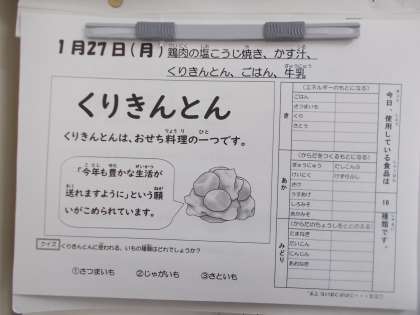 1月27日(月) 鶏肉の塩こうじ焼き、かす汁、
くりきんとん、ごはん、牛乳
くりきんとん
くりきんとんは、おせち料理の一つです。
「今年も豊かな生活が
送れますように」という願
いがこめられています。
クイズ くりきんとんに使われる、いもの種類はどれでしょうか?
①さつまいも ②じゃがいも ③さといも
今日、使用している食品は 16 種類です。
き
(エネルギーのもとになる)
ごはん
さつまいも
くり
さとう
あか
(からだをつくるもとになる)
ぎゅうにゅう だいこんぶ
けいにく
さけ
うすあげ
しろみそ
あかみそ
みどり
(からだのちょうしをととのえる)
たまねぎ
だいこん
にんじん